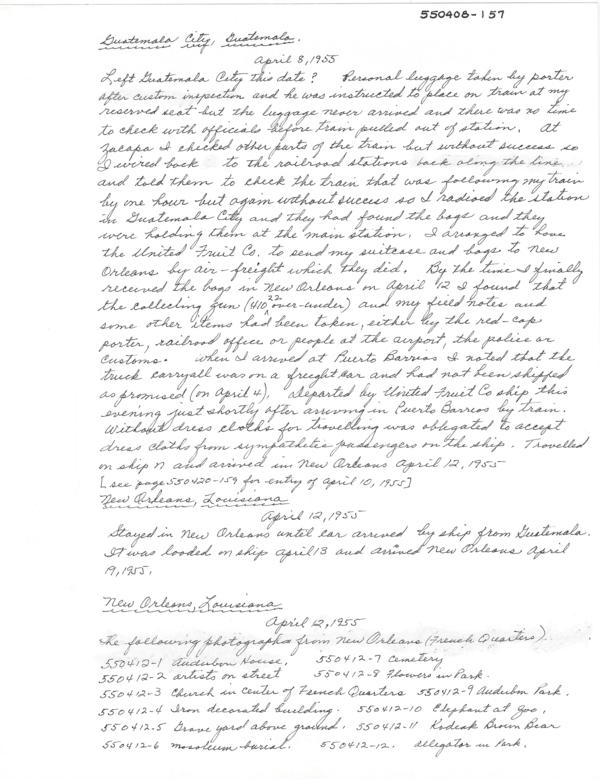 550408-157
Guatemala City, Guatemala.
April 8, 1955
Left Guatemala City this date? Personal luggage taken by porter
after custom inspection and he was instructed to place on train at my
reserved seat but the luggage never arrived and there was no time
to check with officials before train pulled out of station. At
Zacapa I checked other parts of the train but without success so
I wired back to the railroad stations back along the line
and told them to check the train that was following my train
by one hour but again without success so I radioed the station
in Guatemala City and they had found the bags and they
were holding them at the main station. I arranged to have
the United Fruit Co. to send my suitcase and bags to New
Orleans by air-freight which they did. By the time I finally
received the bags in New Orleans on April 12 I found that
the collecting gun (410 22 over-under) and my field notes and
some other items had been taken, either by the red-cap
porter, railroad office or people at the airport, the police or
customs. When I arrived at Puerto Barrios I noted that the
truck carryall was on a freight car and had not been shipped
as promised (on April 4). Departed by United Fruit Co ship this
evening just shortly after arriving in Puerto Barrios by train.
Without dress cloths for travelling was obligated to accept
dress cloths from sympathetic passengers on the ship. Travelled
on ship n and arrived in New Orleans April 12, 1955
[see page 550420-159 for entry of April 10, 1955]
New Orleans, Louisiana
April 12, 1955
Stayed in New Orleans until car arrived by ship from Guatemala.
It was loaded on ship April 13 and arrived New Orleans April
19, 1955.
New Orleans, Louisiana
April 12, 1955
The following photographs from New Orleans (French Quarters)
550412-1 Audubon House. 550412-7 Cemetery
550412-2 artists on street 550412-8 Flowers in Park.
550412-3 Church in Center of French Quarters 550412-9 Audubon Park.
550412-4 Iron decorated building. 550412-10 Elephant at Zoo.
550412.5 Grave yard above ground. 550412-11 Kodeak Brown Bear
550412-6 mosoleum burial. 550412-12. allegator in Park.